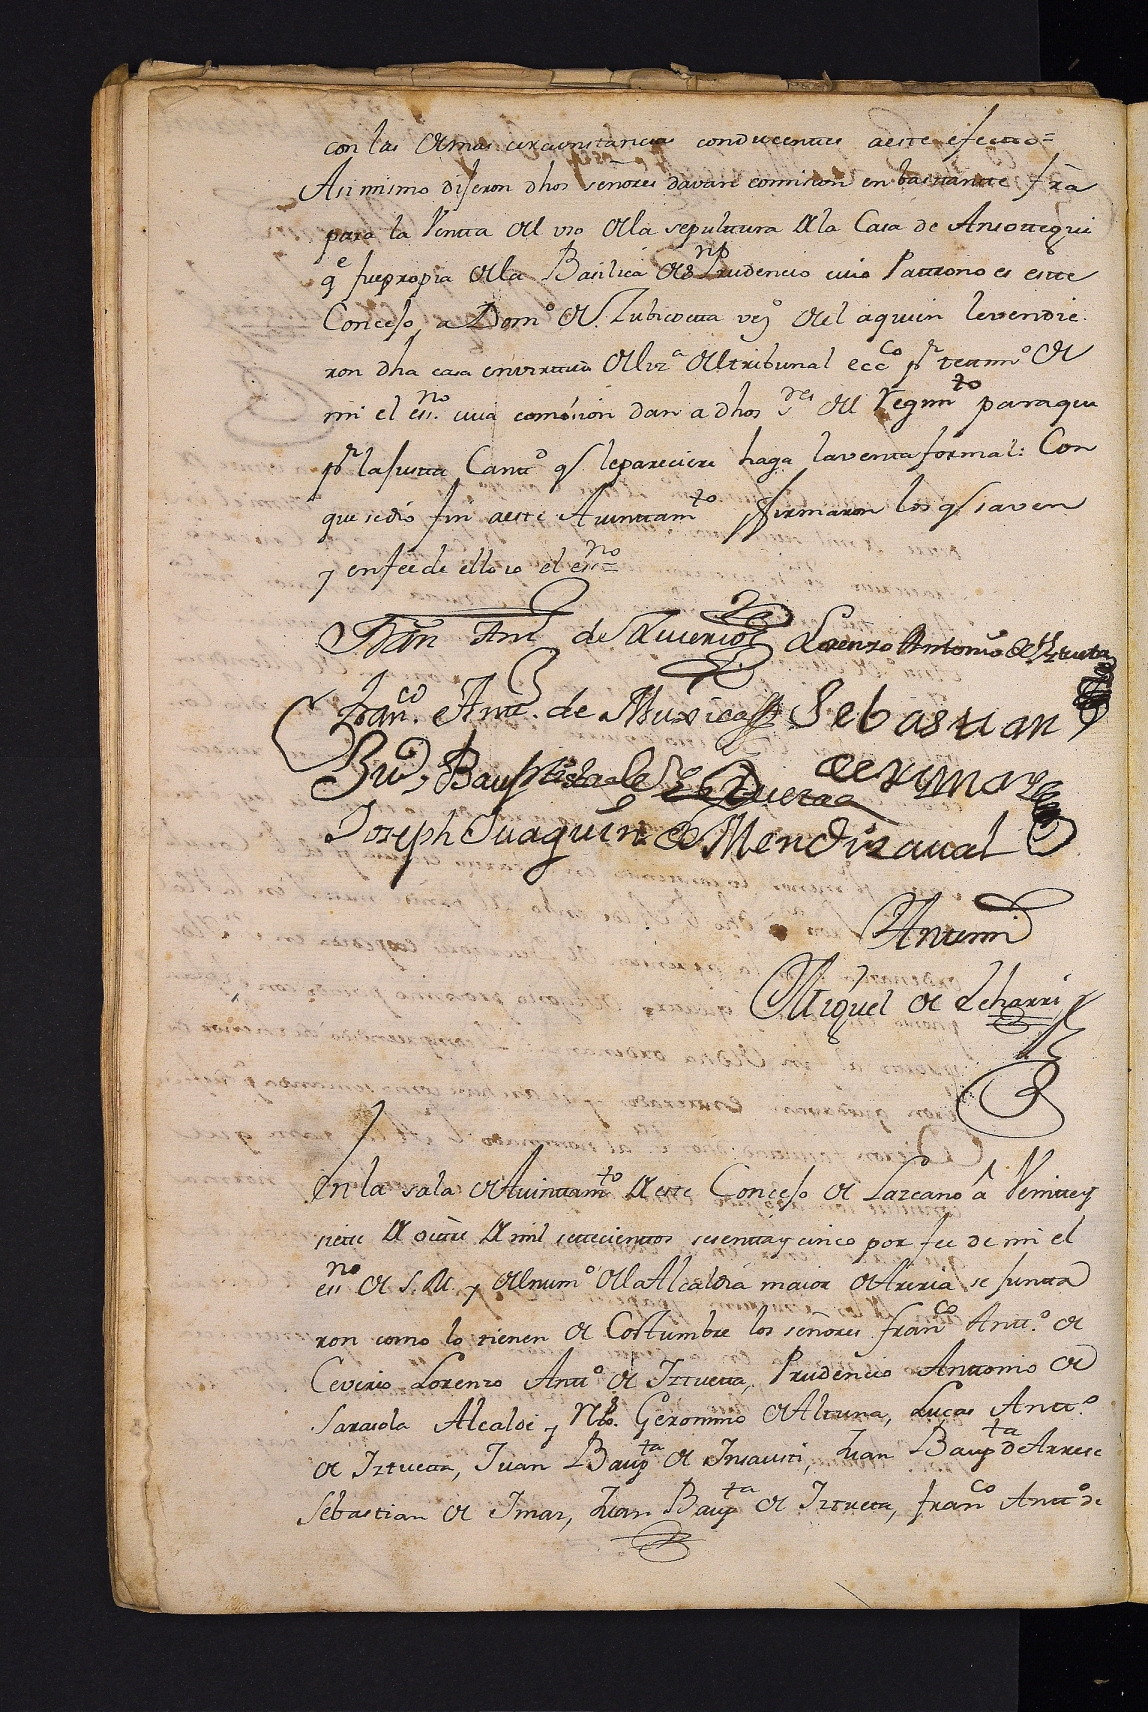 con las demas circunstancias conducentes a este efecto=
Asi mismo dijeron dhos señores davan comision en bastantte fra
para la Ventta del uso de la sepulttura de la Casa de Ansottegui
qe fue propia de la Basilica de Sn Prudencio cuio Pattrono es estte
Concejo, a Domo de Zubicoetta vezo de el aquien levendie
ron dha casa en virttud de liza del tribunal ecco pr testimo de
mi el essno cuia comision dan a dhos sres del Regimto para que
pr la justta Cantto q le pareciere haga la venta formal: Con
que se dio fin a este Aiunttamto y firmaron los q saven
y en fee de ello io el essno=
Fran Antt de Zeverio Lorenzo Antonio de Yztueta
Franco Antt. de Muxica Sebastian
Jun Bauptista de Yztueta de Ymaz
Joseph Juaquin de Mendizaval
Antemi
Miguel de Lecharri
En la sala de Aiunttamto de este Concejo de Lazcano â Veintte y
siette de octtre de mil settecienttos sesentta y cinco por fee de mi el
essno de S.M. y del numo de la Alcaldia maior de Areria se juntta
ron como lo tienen de Costumbre los señores Franco Antto de
Ceverio Lorenzo Antto de Iztuetta, Prudencio Anttonio de
Sarasola Alcalde y Geronimo de Altuna, Lucas Antto
de Iztuetta, Juan Baupta de Insausti, Juan Baupta de Arrese
Sebastian de Imaz, Juan Baupta de Iztueta, franco Antto de